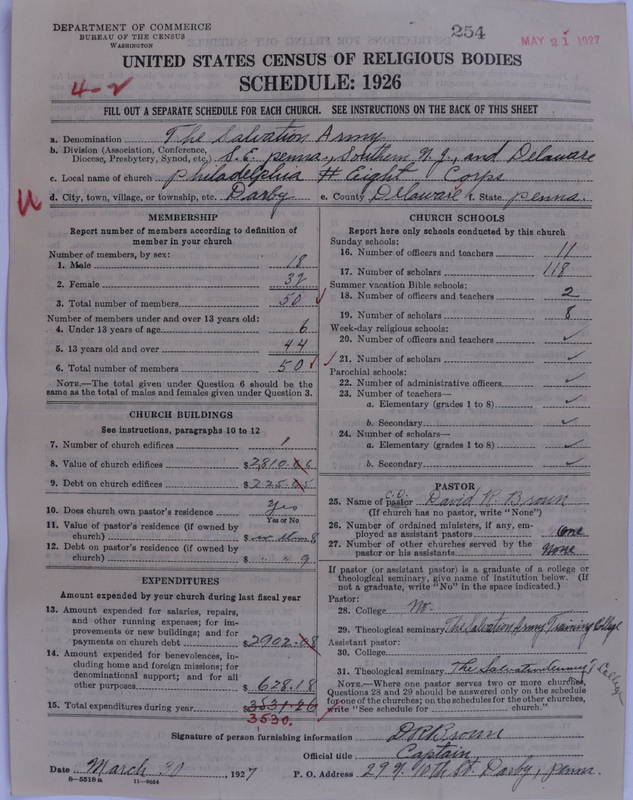 DEPARTMENT OF COMMERCE
BUREAU OF THE CENSUS
WASHINGTON
254
MAY 21 1927
UNITED STATES CENSUS OF RELIGIOUS BODIES
SCHEDULE: 1926
4-2
FILL OUT A SEPARATE SCHEDULE FOR EACH CHURCH. SEE INSTRUCTIONS ON THE BACK OF THIS SHEET
a. Denomination The Salvation Army
b. Division (Association, Conference, Diocese, Presbytery, Synod, etc.) S.E. penna., Southern N.J., and Delaware
c. Local name of church Philadelphia # Eight Corps
d. City, town, village, or township, etc. Darby e. County Delaware f. State penna.
MEMBERSHIP
Report number of members according to definition of
member in your church
Number of members, by sex:
1. Male 18
2. Female 32
3. Total number of members 50
Number of members under and over 13 years old:
4. Under 13 years of age 6
5. 13 years old and over 44
6. Total number of members 50
NOTE.—The total given under Question 6 should be
same as the total of males and females given under Question 3.
CHURCH BUILDINGS
See instructions, paragraphs 10 to 12
7. Number of church edifices 1
8. Value of church edifices $2,810.
9. Debt on church edifices $225.
10. Does church own pastor's residence Yes
Yes or No
11. Value of pastor's residence (if owned by
church) $ in item 8
12. Debt on pastor's residence (if owned by
church) $ 9
EXPENDITURES
Amount expended by your church during last fiscal year
13. Amount expended for salaries, repairs,
and other running expenses; for im-
provements or new buildings; and for
payments on church debt $2902.08
14. Amount expended for benevolences, in-
cluding home and foreign missions; for
denominational support; and for all
other purposes $628.18
15. Total expenditures during year $3531.26
3530.
CHURCH SCHOOLS
Report here only schools conducted by this church
Sunday schools:
16. Number of officers and teachers 11
17. Number of scholars 118
Summer vacation Bible schools:
18. Number of officers and teachers 2
19. Number of scholars 8
Week-day religious schools:
20. Number of officers and teachers
21. Number of scholars
Parochial schools:
22. Number of administrative officers
23. Number of teachers—
a. Elementary (grades 1 to 8)
b. Secondary
24. Number of scholars—
a. Elementary (grades 1 to 8)
b. Secondary
PASTOR
25. Name of pastor David R. Brown
(If church has no pastor, write "None")
26. Number of ordained ministers, if any, em-
ployed as assistant pastors One
27. Number of other churches served by the
pastor or his assistants None
If pastor (or assistant pastor) is a graduate of a college or
theological seminary, give name of institution below. (If
not a graduate, write "No" in the space indicated.)
Pastor:
28. College No.
29. Theological seminary The Salvation Army Training College
Assistant pastor:
30. College
31. Theological seminary The Salvation Army T College
NOTE.—Where one pastor serves two or more churches,
Questions 28 and 29 should be answered only on the schedule
for one of the churches; on the schedules for the other churches,
write "See schedule for church."
Signature of person furnishing information D R Brown
Official title Captain
Date March 30 1927 P. O. Address 29 N. 10th St. Darby, penn.
8—5518 a 11—9654